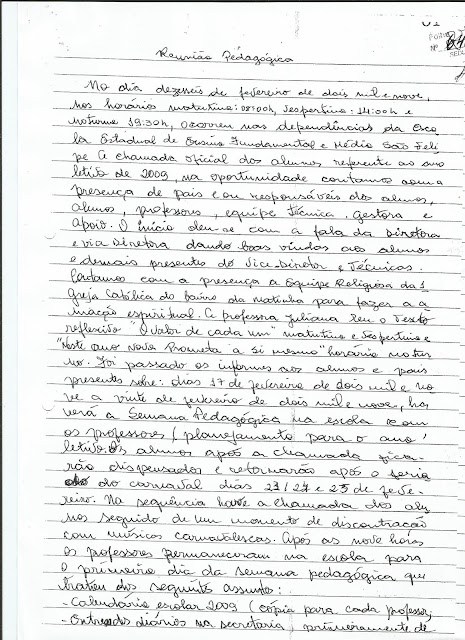 Reunião Pedagógica
No dia dezesseis de fevereiro de dois mil e nove,
nos horários matutino: 08:00h, Vespertino: 14:00h e
noturno 19:30h, ocorreu nas dependências da Esco
la Estadual de Ensino Fundamental e Médio São Feli
pe a chamada oficial dos alunos referente ao ano
letivo de 2009, na oportunidade contamos com a
presença de pais e ou responsáveis dos alunos,
alunos, professores, equipe Técnica, Gestora e
Apoio. O início deu-se com a fala da Diretora
e via Diretora dando boas vindas aos alunos
e demais presentes do Vice-Diretor e Técnicas.
Contamos com a presença a Equipe Religiosa da I
greja Católica do bairro da matinha para fazer a a
nimação espiritual. A professora Juliana leu o Texto
reflexivo "O valor de cada um" matutino e Vespertino e
"Neste ano novo Prometa a Si mesmo" horário notur
no. Foi passado os informes aos alunos e pais
presentes sobre: dias 17 de fevereiro de dois mil e no
ve a vinte de fevereiro de dois mil e nove, ha
verá a Semana Pedagógica na escola com
os professores (planejamento para o ano
letivo. Os alunos após a chamada fica-
rão dispensados e retornarão após o feria
do do carnaval dias 23/24 e 25 de feve-
reiro. Na sequência houve a chamada dos alu
nos seguido de um momento de discontração
com músicas carnavalescas. Após as nove horas
os professores permaneceram na escola para
o primeiro dia da semana pedagógica que
tratou dos seguintes assuntos:
- Calendário escolar 2009 (cópia para cada professor;
- diários na secretaria, primeiramente de